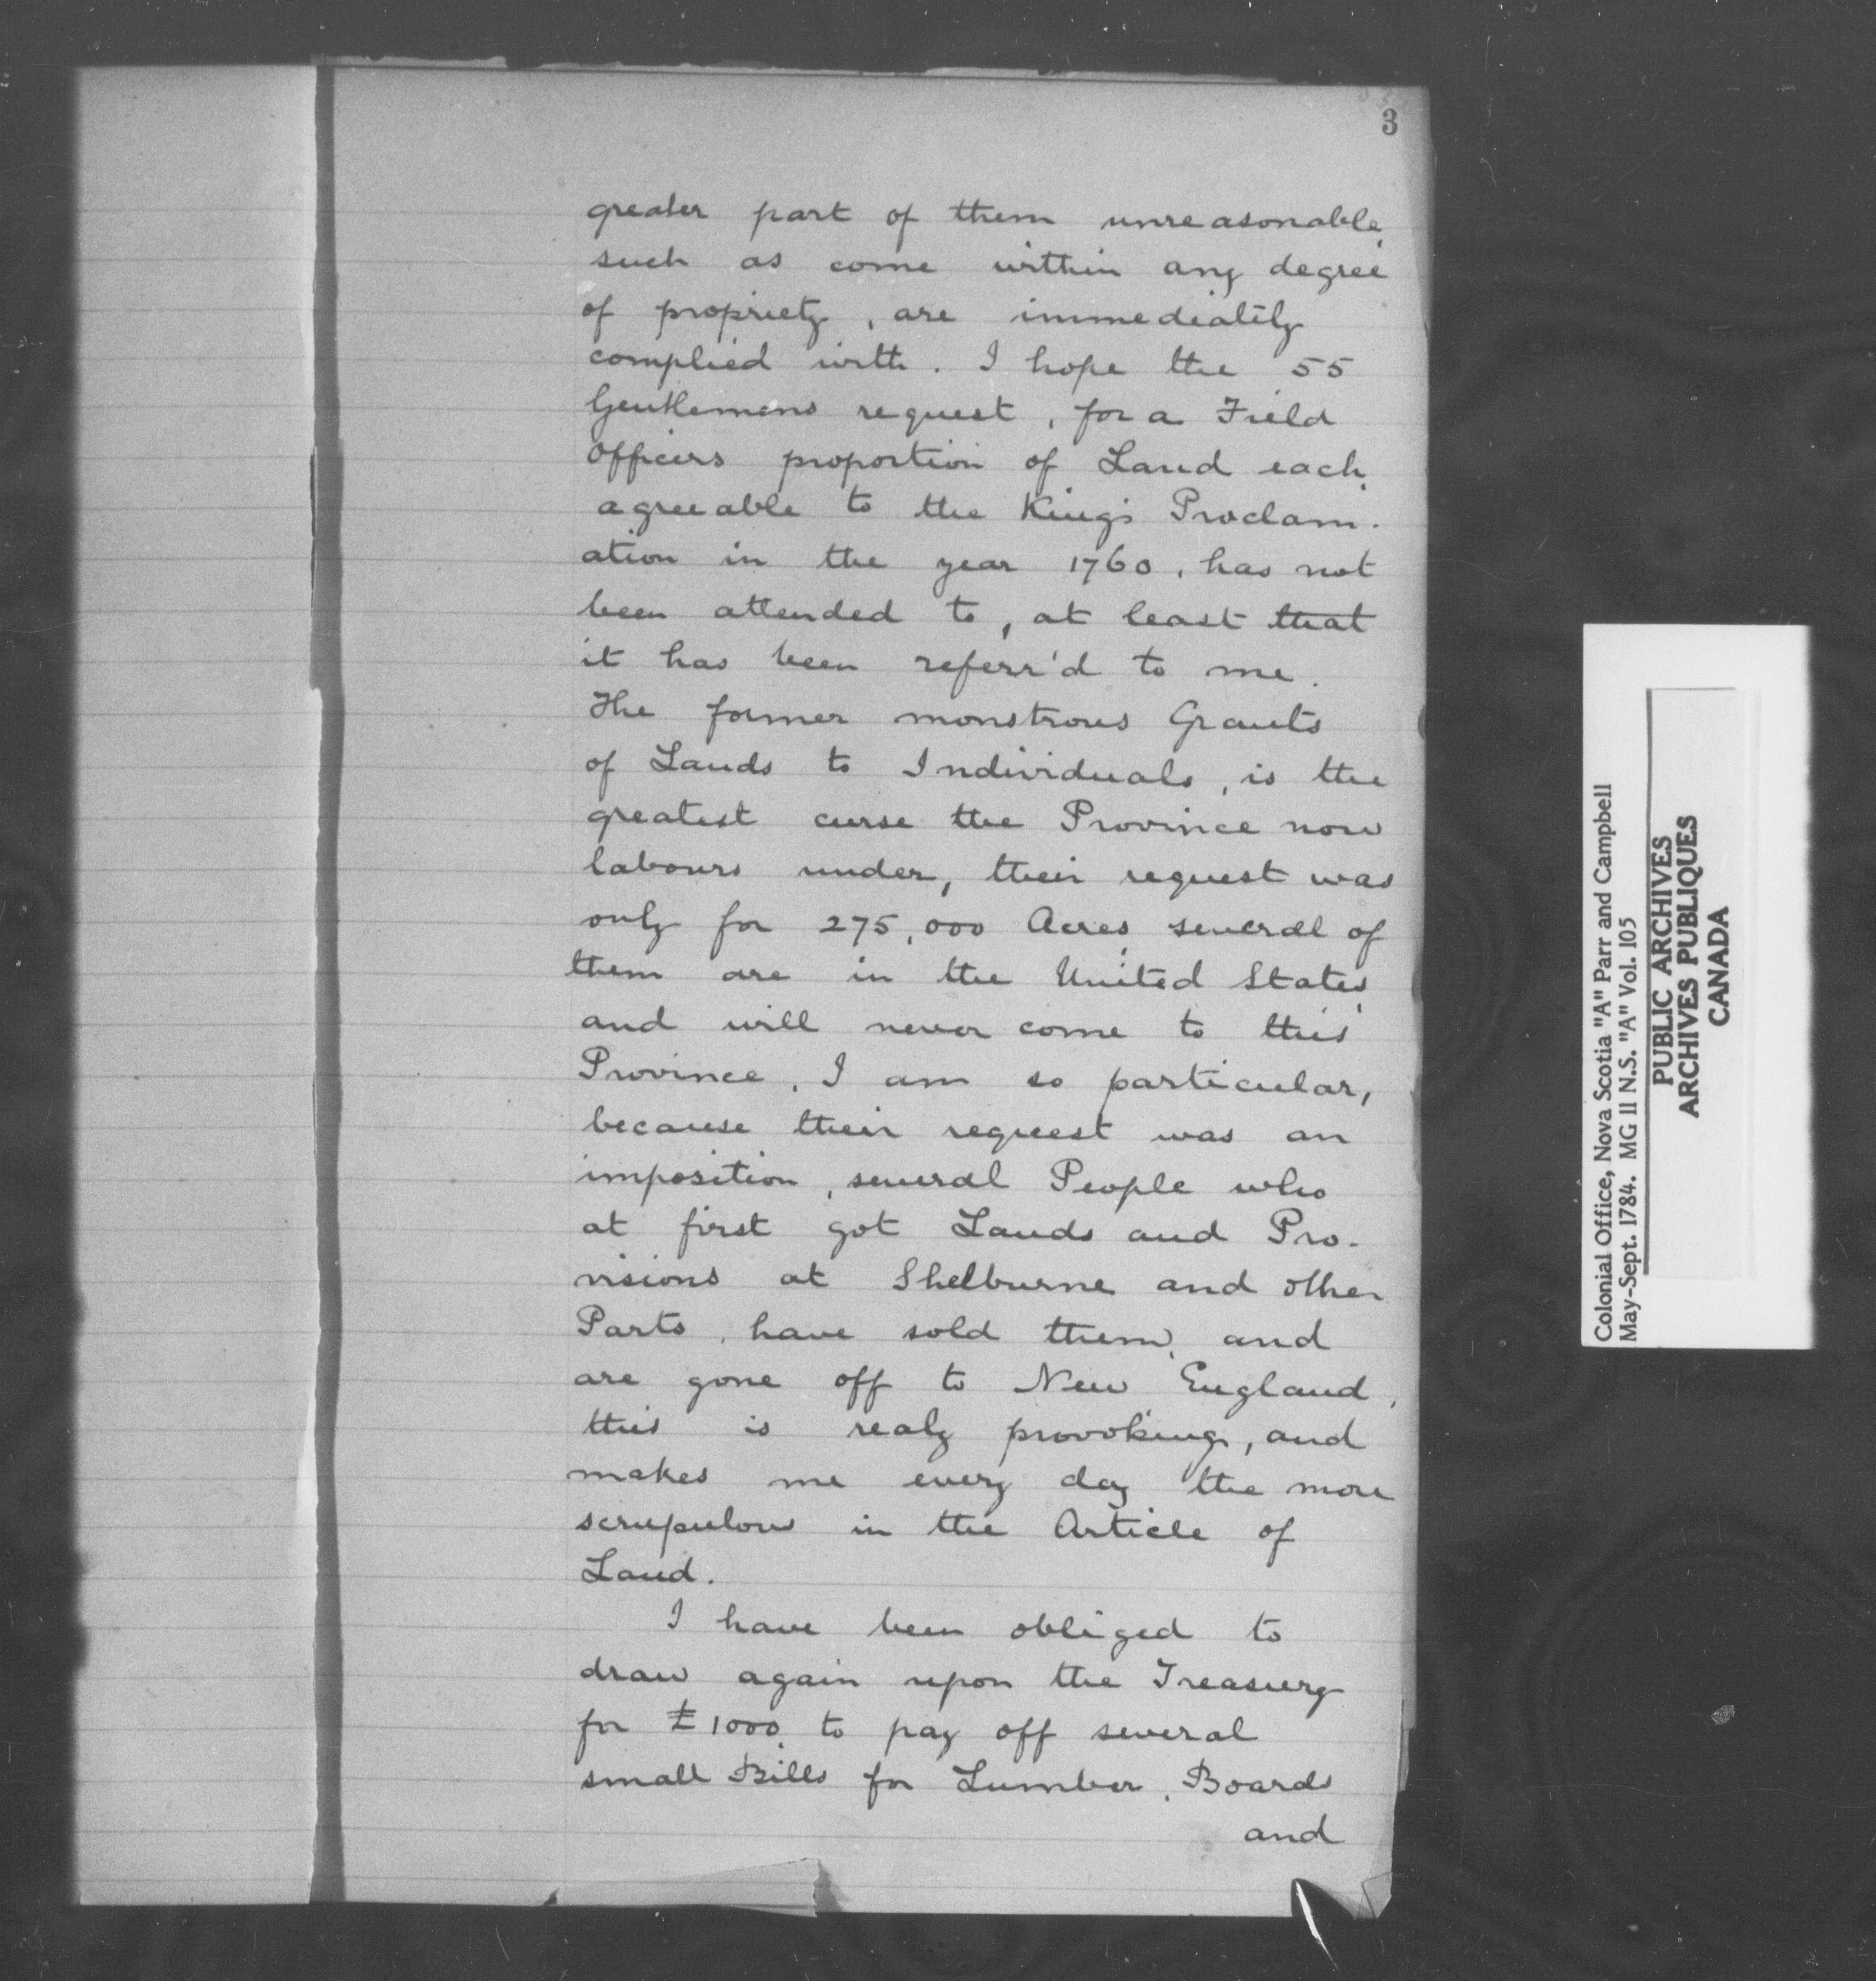 3
greater part of them unreasonable,
such as come within any degree
of propriety, are immediately
complied with. I hope the 55
Gentlemens request, for a Field
Officers proportion of Land each,
agreeable to the King's Proclam-
ation in the year 1760, has not
been attended to, at least that
it has been referr'd to me.
The former monstrous Grants
of Lands to Individuals, is the
greatest curse the Province now
labours under, their request was
only for 275,000 Acres, several of
them are in the United States,
and will never come to this
Province, I am so particular,
because their request was an
imposition, several People who
at first got Lands and Pro-
visions at Shelburne and other
Parts, have sold them, and
are gone off to New England,
this is realy provoking, and
makes me every day the more
scrupulous in the Article of
Land.
I have been obliged to
draw again upon the Treasury
for £1000, to pay off several
small Bills for Lumber, Boards
and
Colonial Office, Nova Scotia "A" Parr and Campbell
May-Sept. 1784. MG 11 N.S. "A" Vol. 105
PUBLIC ARCHIVES
ARCHIVES PUBLIQUES
CANADA